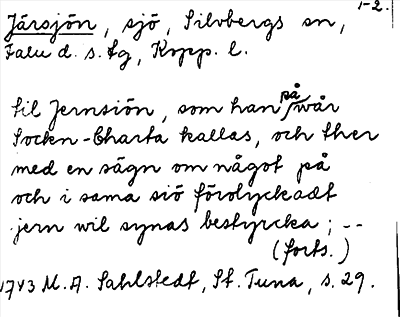 1-2.
Järsjön, sjö, Silvbergs sn,
Falu d. s. fg, Kopp. l.
til Jernsiön, som han på wår
Sockn-Charta kallas, och ther
med en sägn om något på
och i sama siö förolyckadt
jern wil synas bestyrcka; --
(forts.)
1743 M. A. Sahlstedt, St. Tuna, s. 29.